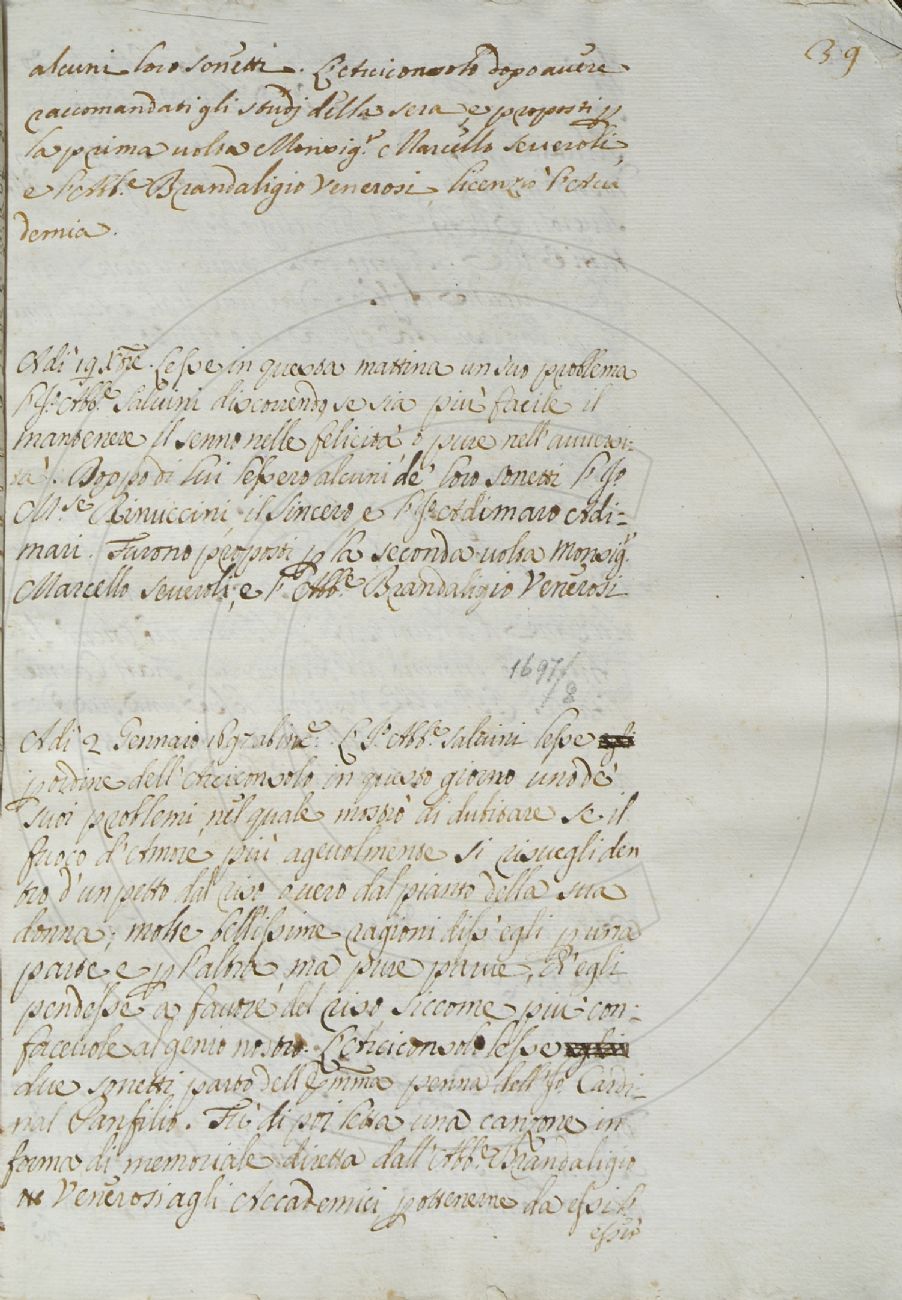 39
alcuni loro sonetti. L'Arciconsolo dopo avere
raccomandati gli studj della sera, e proposti p
la prima volta Monsig.r Marcello Severoli,
e l'Abb.e Brandaligio Venerosi, licenziò l'Acca
demia.
Adì 19 Xbre. Lesse in questa mattina un suo problema
l'S.r Abb.e Salvini discorrendo se sia più facile il
mantenere il senno nelle felicità o pure nell'avversi-
tà. Doppo di lui lessero alcuni de' loro sonetti l'S.r
M.se Rinuccini il Sincero e l'S.r Adimaro Adi=
mari. Furono proposti p la seconda volta Monsig.r
Marcello Severoli, e l'Abb.e Brandaligio Venerosi
1697/8
Adì 2 Gennaio 1697 ab Inc.e L'S.r Abb.e Salvini lesse
p ordine dell'Arciconsolo in questo giorno uno de'
suoi problemi nel quale mostrò di dubitare se il
fuoco d'Amore più agevolmente si risvegli den
tro d'un petto dal riso o vero dal pianto della sua
donna; molte bellissime ragioni diss'egli p una
parte e p l'altra, ma pure parve, ch'egli
pendesse a favore del riso siccome più con=
facevole al genio nostro. L'Arciconsolo lesse
due sonetti parto dell'Emma penna dell'S.r Cardi=
nal Panfilio. Fù di poi letta una canzone in
forma di memoriale diretta dall'Abb.e Brandaligio
Venerosi agli Accademici p ottenerne da essi l'
esser